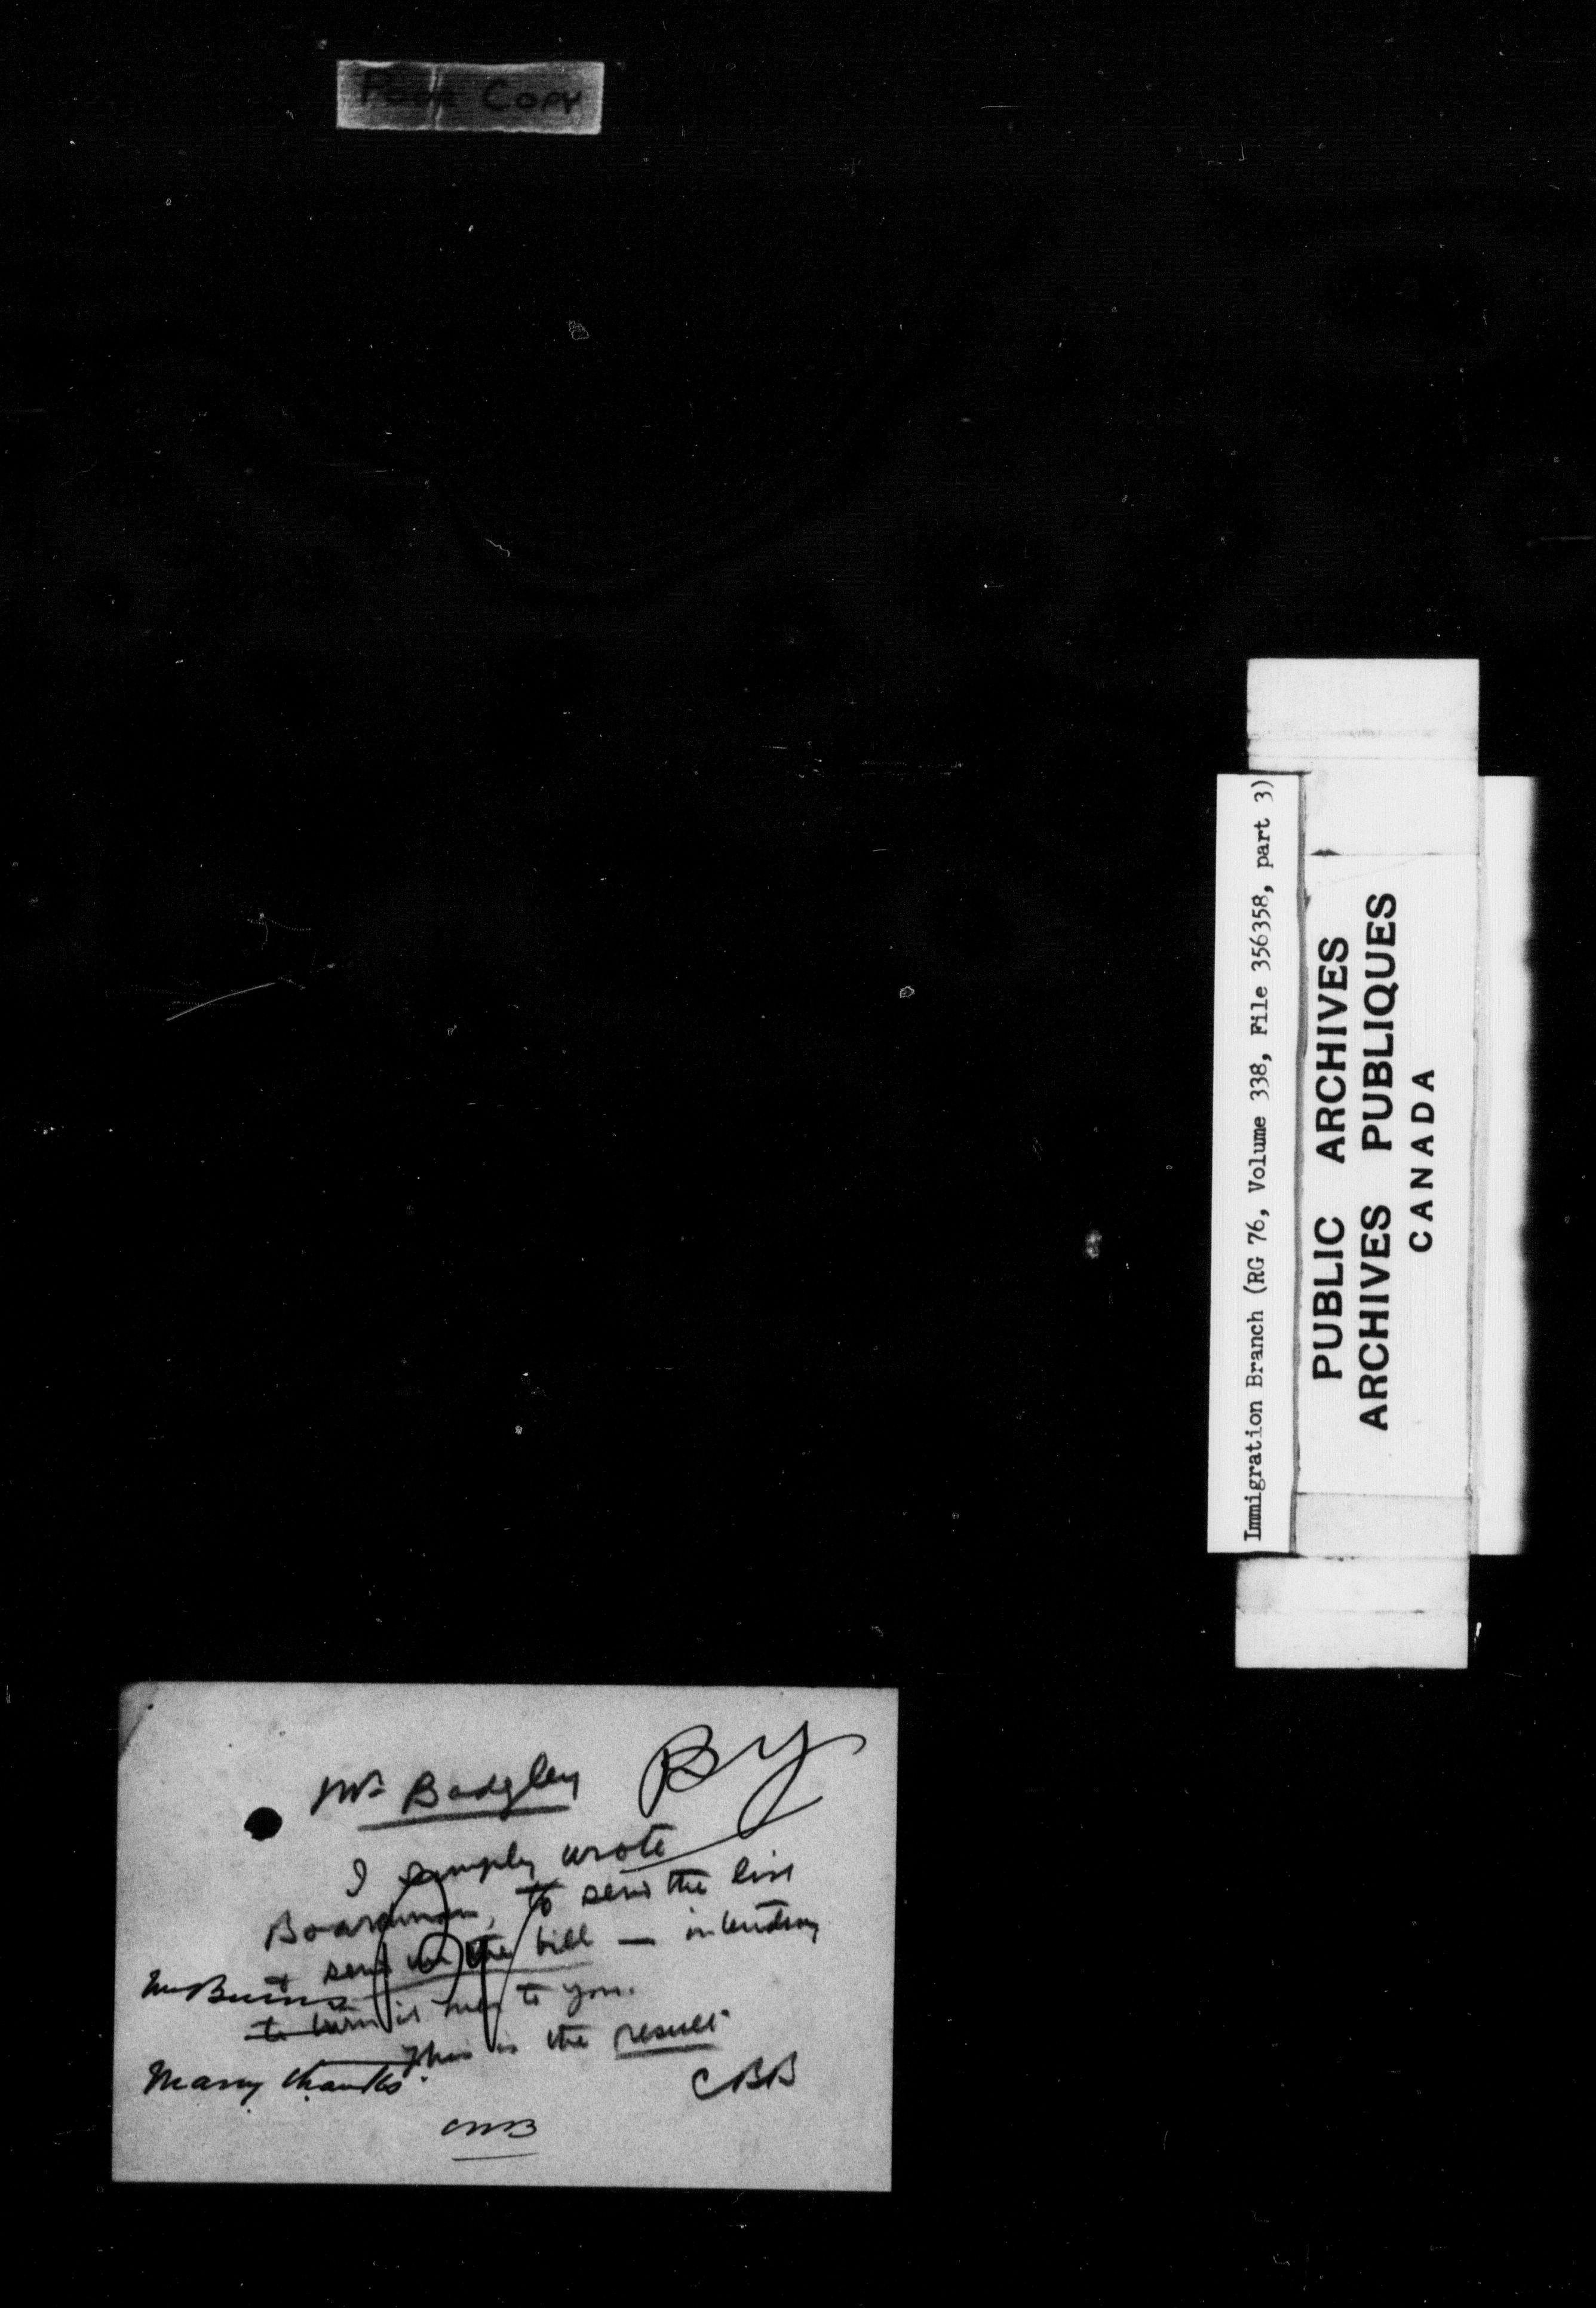 Poor Copy
Immigration Branch (RG 76, Volume 338, File 356358, part 3)
PUBLIC ARCHIVES
ARCHIVES PUBLIQUES
CANADA
Mr Badgley
By
I simply wrote
Boardman, to send the list
& send in the bill — intending
Mr Burns
to turn it over to you.
This is the result.
Many thanks.
CBB